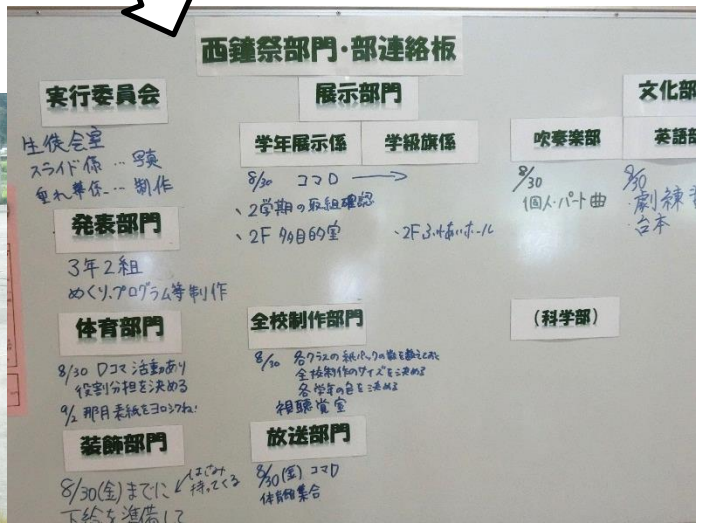 西鐘祭部門・部連絡板
実行委員会
生徒会室
スライド係…写真
垂れ幕係…制作
発表部門
3年2組
めくり、プログラム等制作
体育部門
8/30 Dコマ 活動あり
役割分担を決める
9/2 那月 素紙をヨロシクね!
装飾部門
8/30(金)までに
はさみ
持ってくる
下絵を準備して
展示部門
学年展示係 学級旗係
8/30 コマD →
、2学期の取組確認
、2F 多目的室 、2Fふれあいホール
全校制作部門
8/30 各クラスの紙パックの数を数えておく
全校制作のサイズを決める
各学年の色を決める
視聴覚室
放送部門
8/30(金) コマD
体育館集合
文化部
吹奏楽部 英語部
8/30
個人・パート曲
8/30
・劇練
・台本
(科学部)